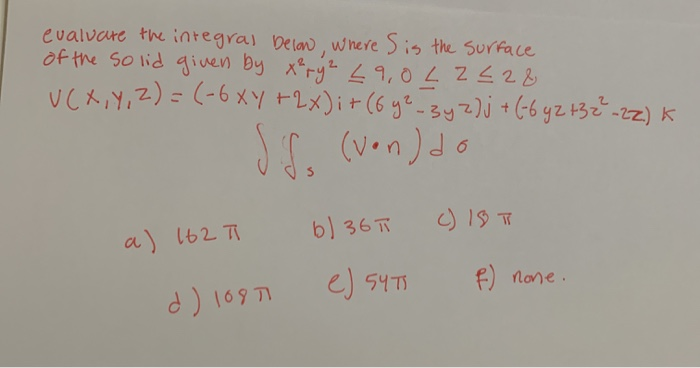 evaluate the integral below, where S is the surface
of the solid given by x²+y² ≤ 9, 0 ≤ z ≤ 2 &
V(x,y,z) = (-6xy+2x)i + (6y²-3yz)j + (-6yz+3z²-2z) k
∫∫s (V•n) dσ
a) 162π b) 36π c) 18π
d) 108π e) 54π f) none.